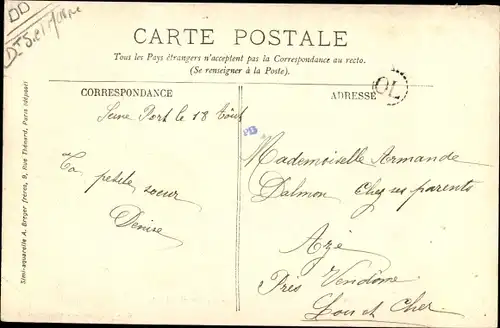 DD
CARTE POSTALE
Tous les Pays étrangers n'acceptent pas la Correspondance au recto.
(Se renseigner à la Poste).
CORRESPONDANCE
Seine Port le 18 Août
Ta petite soeur
Denise
ADRESSE
OL
Mademoiselle Armande
Dalmon Chez ses parents
Azé
Près Vendôme
Loir et Cher
Simi-aquarelle A. Breger frères, 9, Rue Thénard, Paris (déposé)